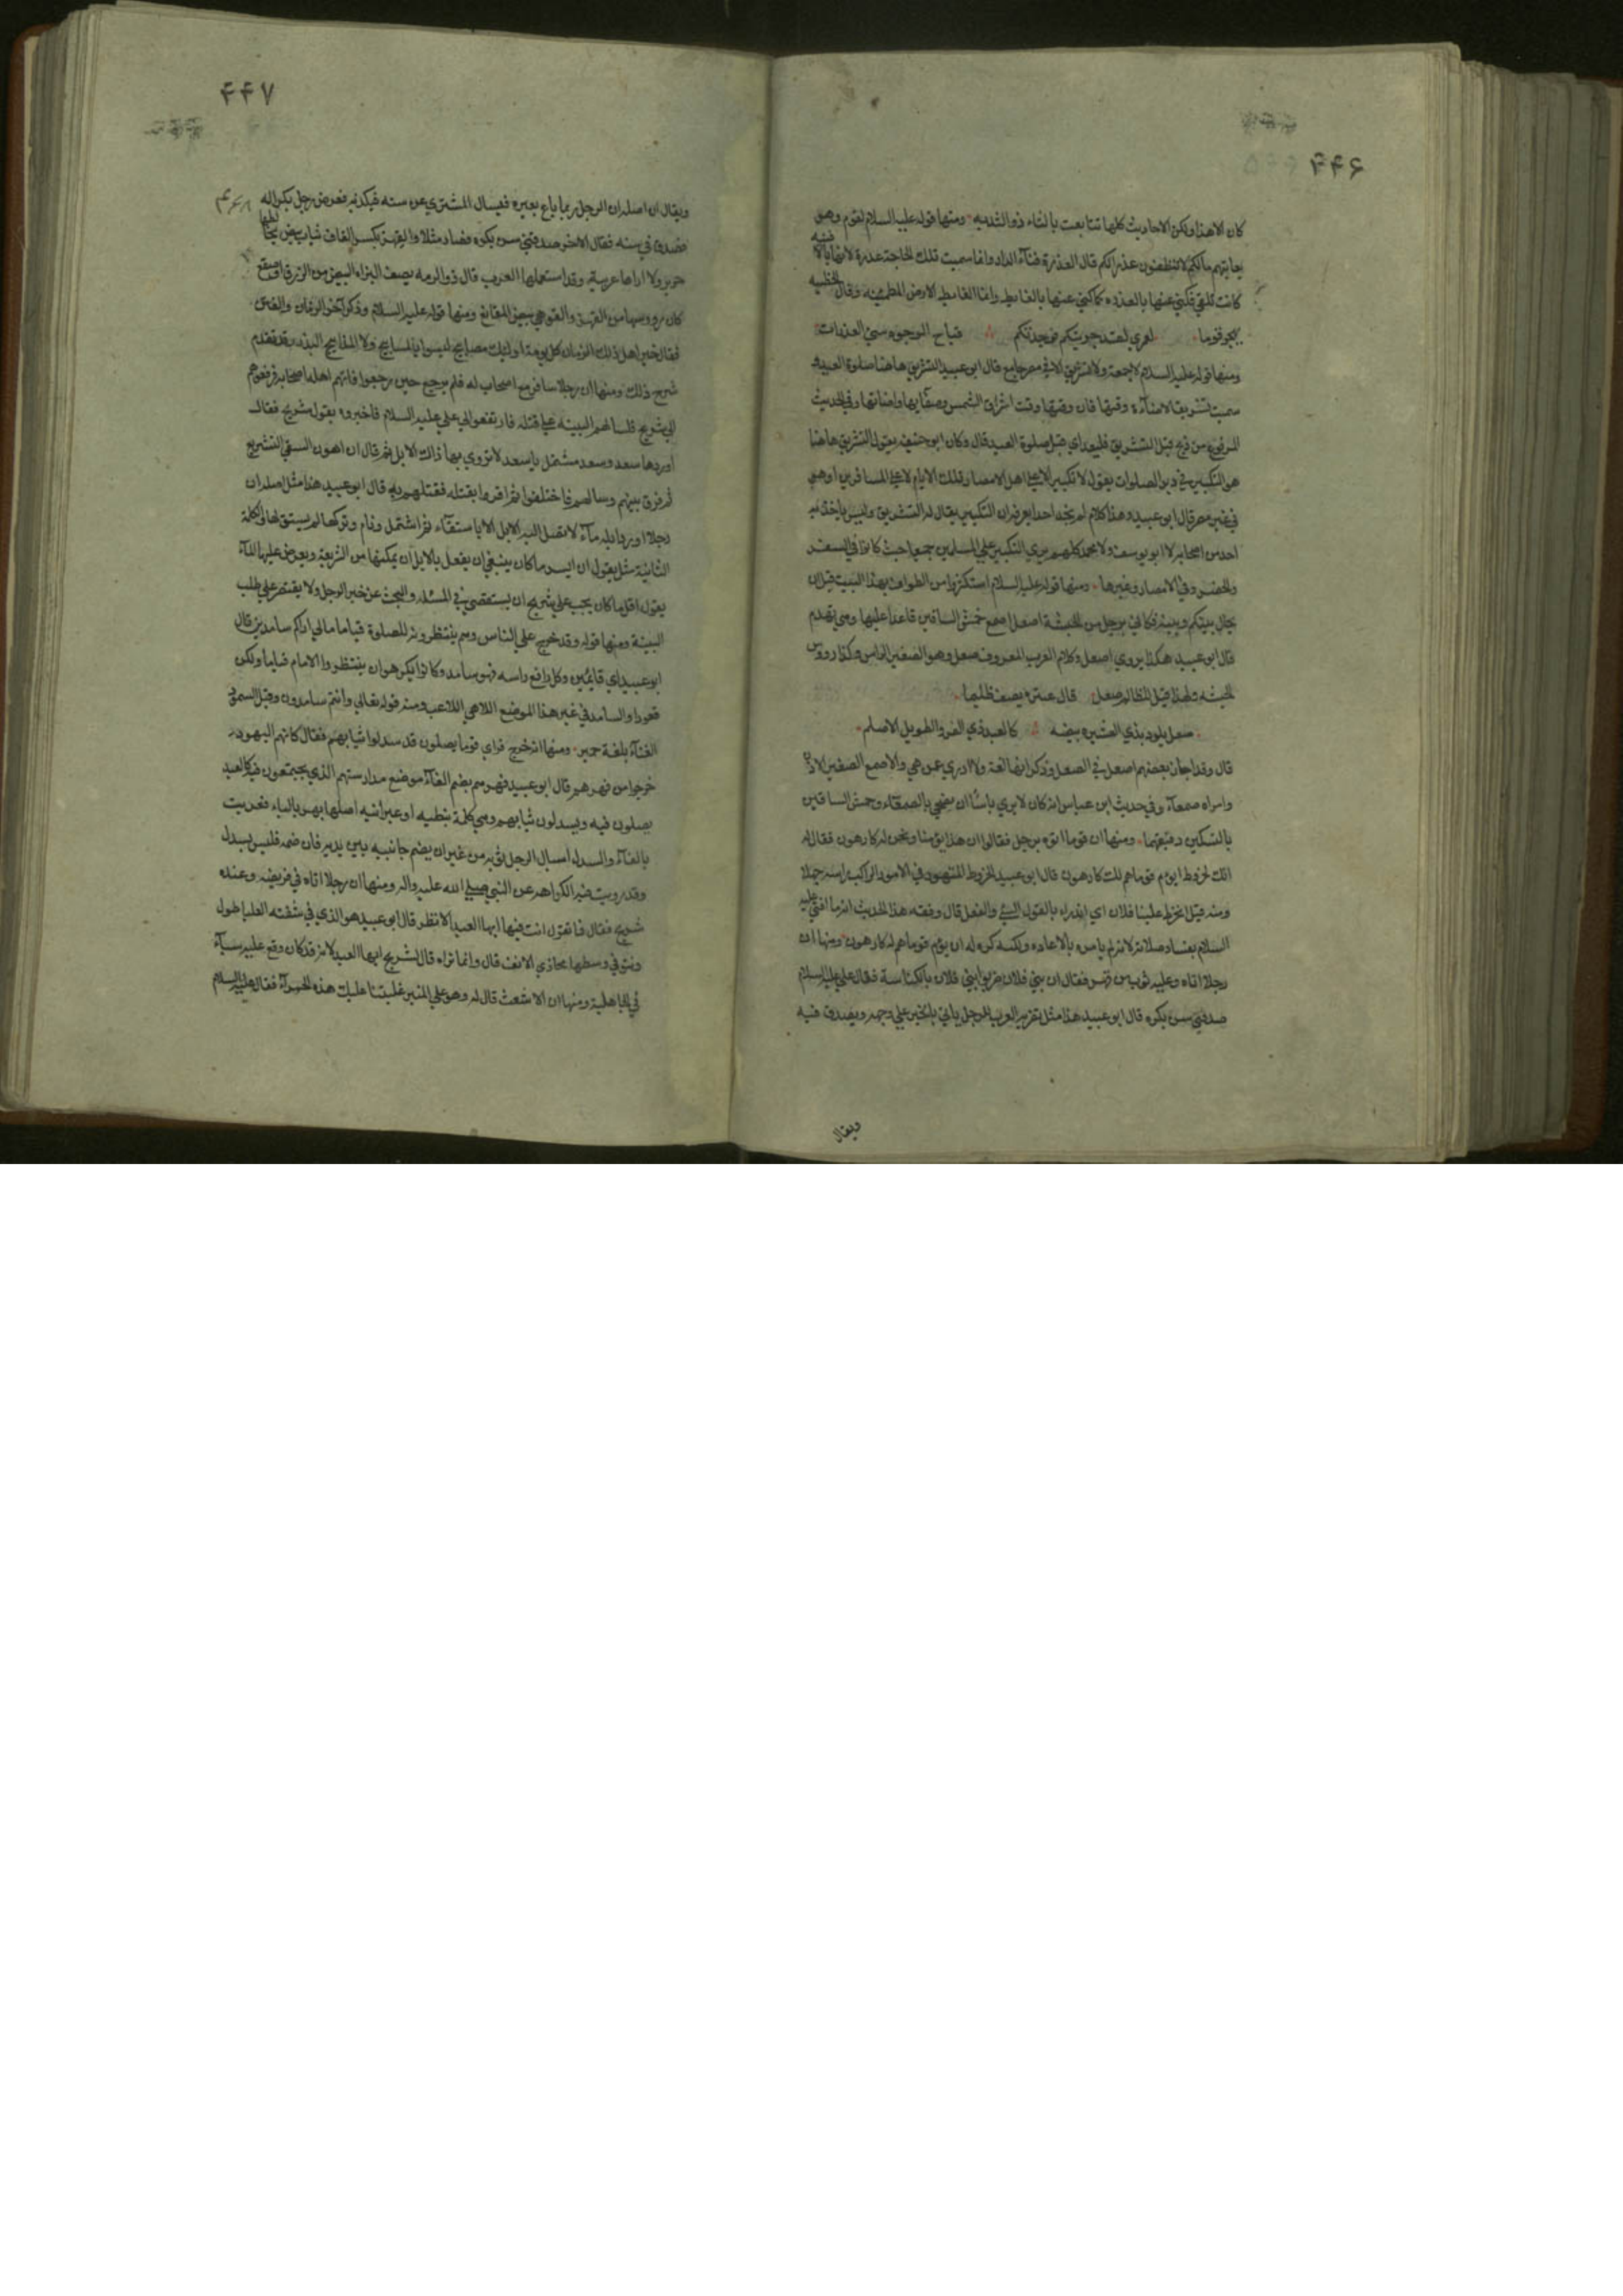 ۴۴۶
كان الا هذا ولكن الاحاديث كلها تتابعت بالثاء ذو الثديه ومنها قوله عليه السلام لقوم وهو
يعاتبهم مالكم لا تنظفون عذراتكم قال العذرة فنآء الدار وانما سميت تلك الحاجة عذرة لانها بالافنيه
كانت تلقي فكني عنها بالعذره كما كني عنها بالغايط وانما الغايط الارض المطمئنه وقال الحطيه
يهجو قوما لعمري لقد جربتكم فوجدتكم قباح الوجوه سئ العذرات
ومنها قوله عليه السلام لا جمعة ولا تشريق الا في مصر جامع قال ابو عبيد التشريق هاهنا صلوة العيد و
سميت تشريقا لاضاءة وقتها فان وقتها وقت اشراق الشمس وصفآيها واضائتها وفي الحديث
المرفوع من ذبح قبل التشريق فليعد اي قبل صلوة العيد قال وكان ابو حنيفه يقول التشريق هاهنا
هو التكبير في دبر الصلوات يقول لا تكبير الا علي اهل الامصار تلك الايام لا علي المسافرين او هو
في غير مصر قال ابو عبيد وهذا كلام لم نجد احدا يعرفه ان التكبير يقال له التشريق وليس ياخذ به
احد من اصحابه لا ابو يوسف ولا محمد كلهم يري التكبير علي المسلمين جميعا حيث كانوا في السفر
والحضر وفي الامصار وغيرها ومنها قوله عليه السلام استكثروا من الطواف بهذا البيت قبل ان
يحال بينكم وبينه فكاني برجل من الحبشة اصعل اصمع خمش الساقين قاعدا عليها وهي تهدم
قال ابو عبيد هكذا يروي اصعل وكلام العرب المعروف صعل وهو الصغير الراس وكذا رووس
الحبشه ولهذا قيل للظالم صعل قال عنتره يصف ظليما
صعل يلوذ بذي العشيره بيضه كالعبد ذي الفرو الطويل الاصلم
قال وقد اجاز بعضهم اصعل في الصعل وذكر انها لغة ولا ادري عمن هي والاصمع الصغير الاذن
وامراه صمعآء وفي حديث ابن عباس انه كان لا يري باسًا ان يضحي بالصمعآء وحمش الساقين
بالتسكين دقيقهما ومنها ان قوما اتوه برجل فقالوا ان هذا يؤمنا ونحن له كارهون فقال له
انك لخروط اتوم قوما هم لك كارهون قال ابو عبيد الخروط المتهور في الامور الراكب راسه جهلا
ومنه قيل انخرط علينا فلان اي اندراء بالقول السئ والفعل قال وفقه هذا الحديث انه ما افتي عليه
السلام بفساد صلاته لانه لم يامره بالاعاده ولكنه كره له ان يؤم قوما هم له كارهون ومنها ان
رجلا اتاه وعليه ثوب من قهز فقال ان بني فلان ضربوا بني فلان بالكناسة فقال علي عليه السلام
صدقني سن بكره قال ابو عبيد هذا مثل تضربه العرب للرجل ياتي بالخبر علي وجهه ويصدق فيه
ويقال
۴۴۷
ويقال ان اصله ان الرجل ربما باع بعيره فيسال المشتري عن سنه فيكذبه فعرض رجل بكرا له
فصدق في سنه فقال الاخر صدقني سن بكره فصار مثلا والقهز بكسر القاف ثياب بيض يخالطها
حرير ولا اراها عربية وقد استعملها العرب قال ذو الرمه يصف البزاه البيض من الزرق او صقع
كان رووسها من القهز والقوهي بيض المقانع ومنها قوله عليه السلام وذكر آخر الزمان والفتن
فقال خير اهل ذلك الزمان كل نومة اوليك مصابيح ليسوا بالمساييح ولا المذاييع البذر وقد تقدم
شرح ذلك ومنها ان رجلا سافر مع اصحاب له فلم يرجع حين رجعوا فاتهم اهله اصحابه فرفعوهم
الي شريح فسالهم البينه علي قتله فارتفعوا الي علي عليه السلام فاخبروه بقول شريح فقال
اوردها سعد وسعد مشتمل يا سعد لا تروي بهاذاك الابل ثم قال ان اهون السقي التشريع
ثم فرق بينهم وسالهم فاختلفوا ثم اقروا بقتله فقتلهم به قال ابو عبيد هذا مثل اصله ان
رجلا اورد ابله مآء لا تصل اليه الابل الا باستقآء ثم اشتمل ونام وتركها لم يستق لها والكلمة
الثانية مثل يقول ان ايسر ما كان ينبغي ان يفعل بالابل ان يمكنها من الشريعة ويعرض عليها المآء
يقول اقل ما كان يجب علي شريح ان يستقصي في المسئله والبحث عن خبر الرجل ولا يقتصر علي طلب
البينة ومنها قوله وقد خرج علي الناس وهم ينتظرونه للصلوة قياما مالي اراكم سامدين قال
ابو عبيد اي قايمين وكل رافع راسه فهو سامد وكانوا يكرهون ان ينتظروا الامام قياما ولكن
قعودا والسامد في غير هذا الموضع اللاهي اللاعب ومنه قوله تعالي وانتم سامدون وقيل السمود
الغنآء بلغة حمير ومنها انه خرج فراي قوما يصلون قد سدلوا ثيابهم فقال كانهم اليهود
خرجوا من فهرهم قال ابو عبيد فهرهم بضم الفآء موضع مدارستهم الذي يجتمعون فيه كالعيد
يصلون فيه ويسدلون ثيابهم وهي كلمة نبطيه او عبرانيه اصلها بهر بالباء فعربت
بالفآء والسدل اسبال الرجل ثوبه من غير ان يضم جانبيه بين يديه فان ضمه فليس بسدل
وقد رويت فيه الكراهه عن النبي صلي الله عليه واله ومنها ان رجلا اتاه في فريضه وعنده
شريح فقال فاتقول انت فيها ايها العبد الابظر قال ابو عبيد هو الذي في شفته العليا طول
ونتو في وسطها محاذي الانف قال وانما نراه قال لشريح ايها العبد لانه قد كان وقع عليه سبآء
في الجاهلية ومنها ان الاشعث قال له وهو علي المنبر غلبتنا عليك هذه الحمرآء فقال عليه السلام